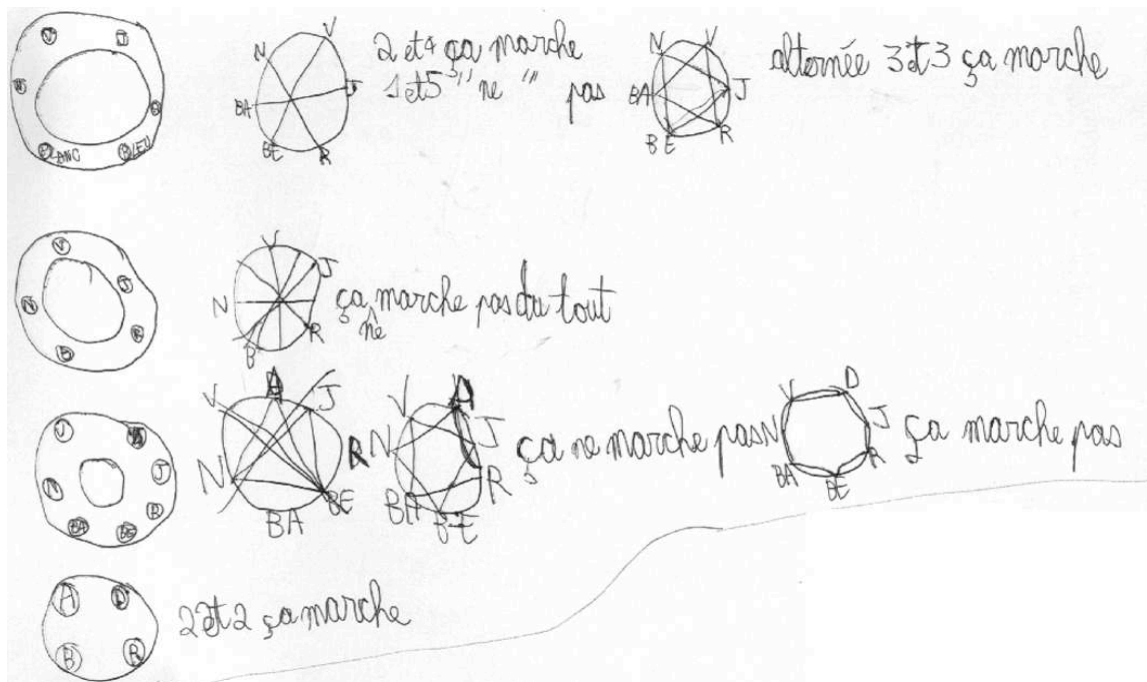 V J
LANC LEU
N V J R BE BA
2 et 4 ça marche
1 et 5 " ne " pas
N V J R BE BA
alternée 3 et 3 ça marche
V J B N
V J R B N
ça marche pas du tout
ne
V A J R BE BA N
V A J R BE BA N
ça ne marche pas
V D J R BE BA N
ça marche pas
A D
B R
2 et 2 ça marche